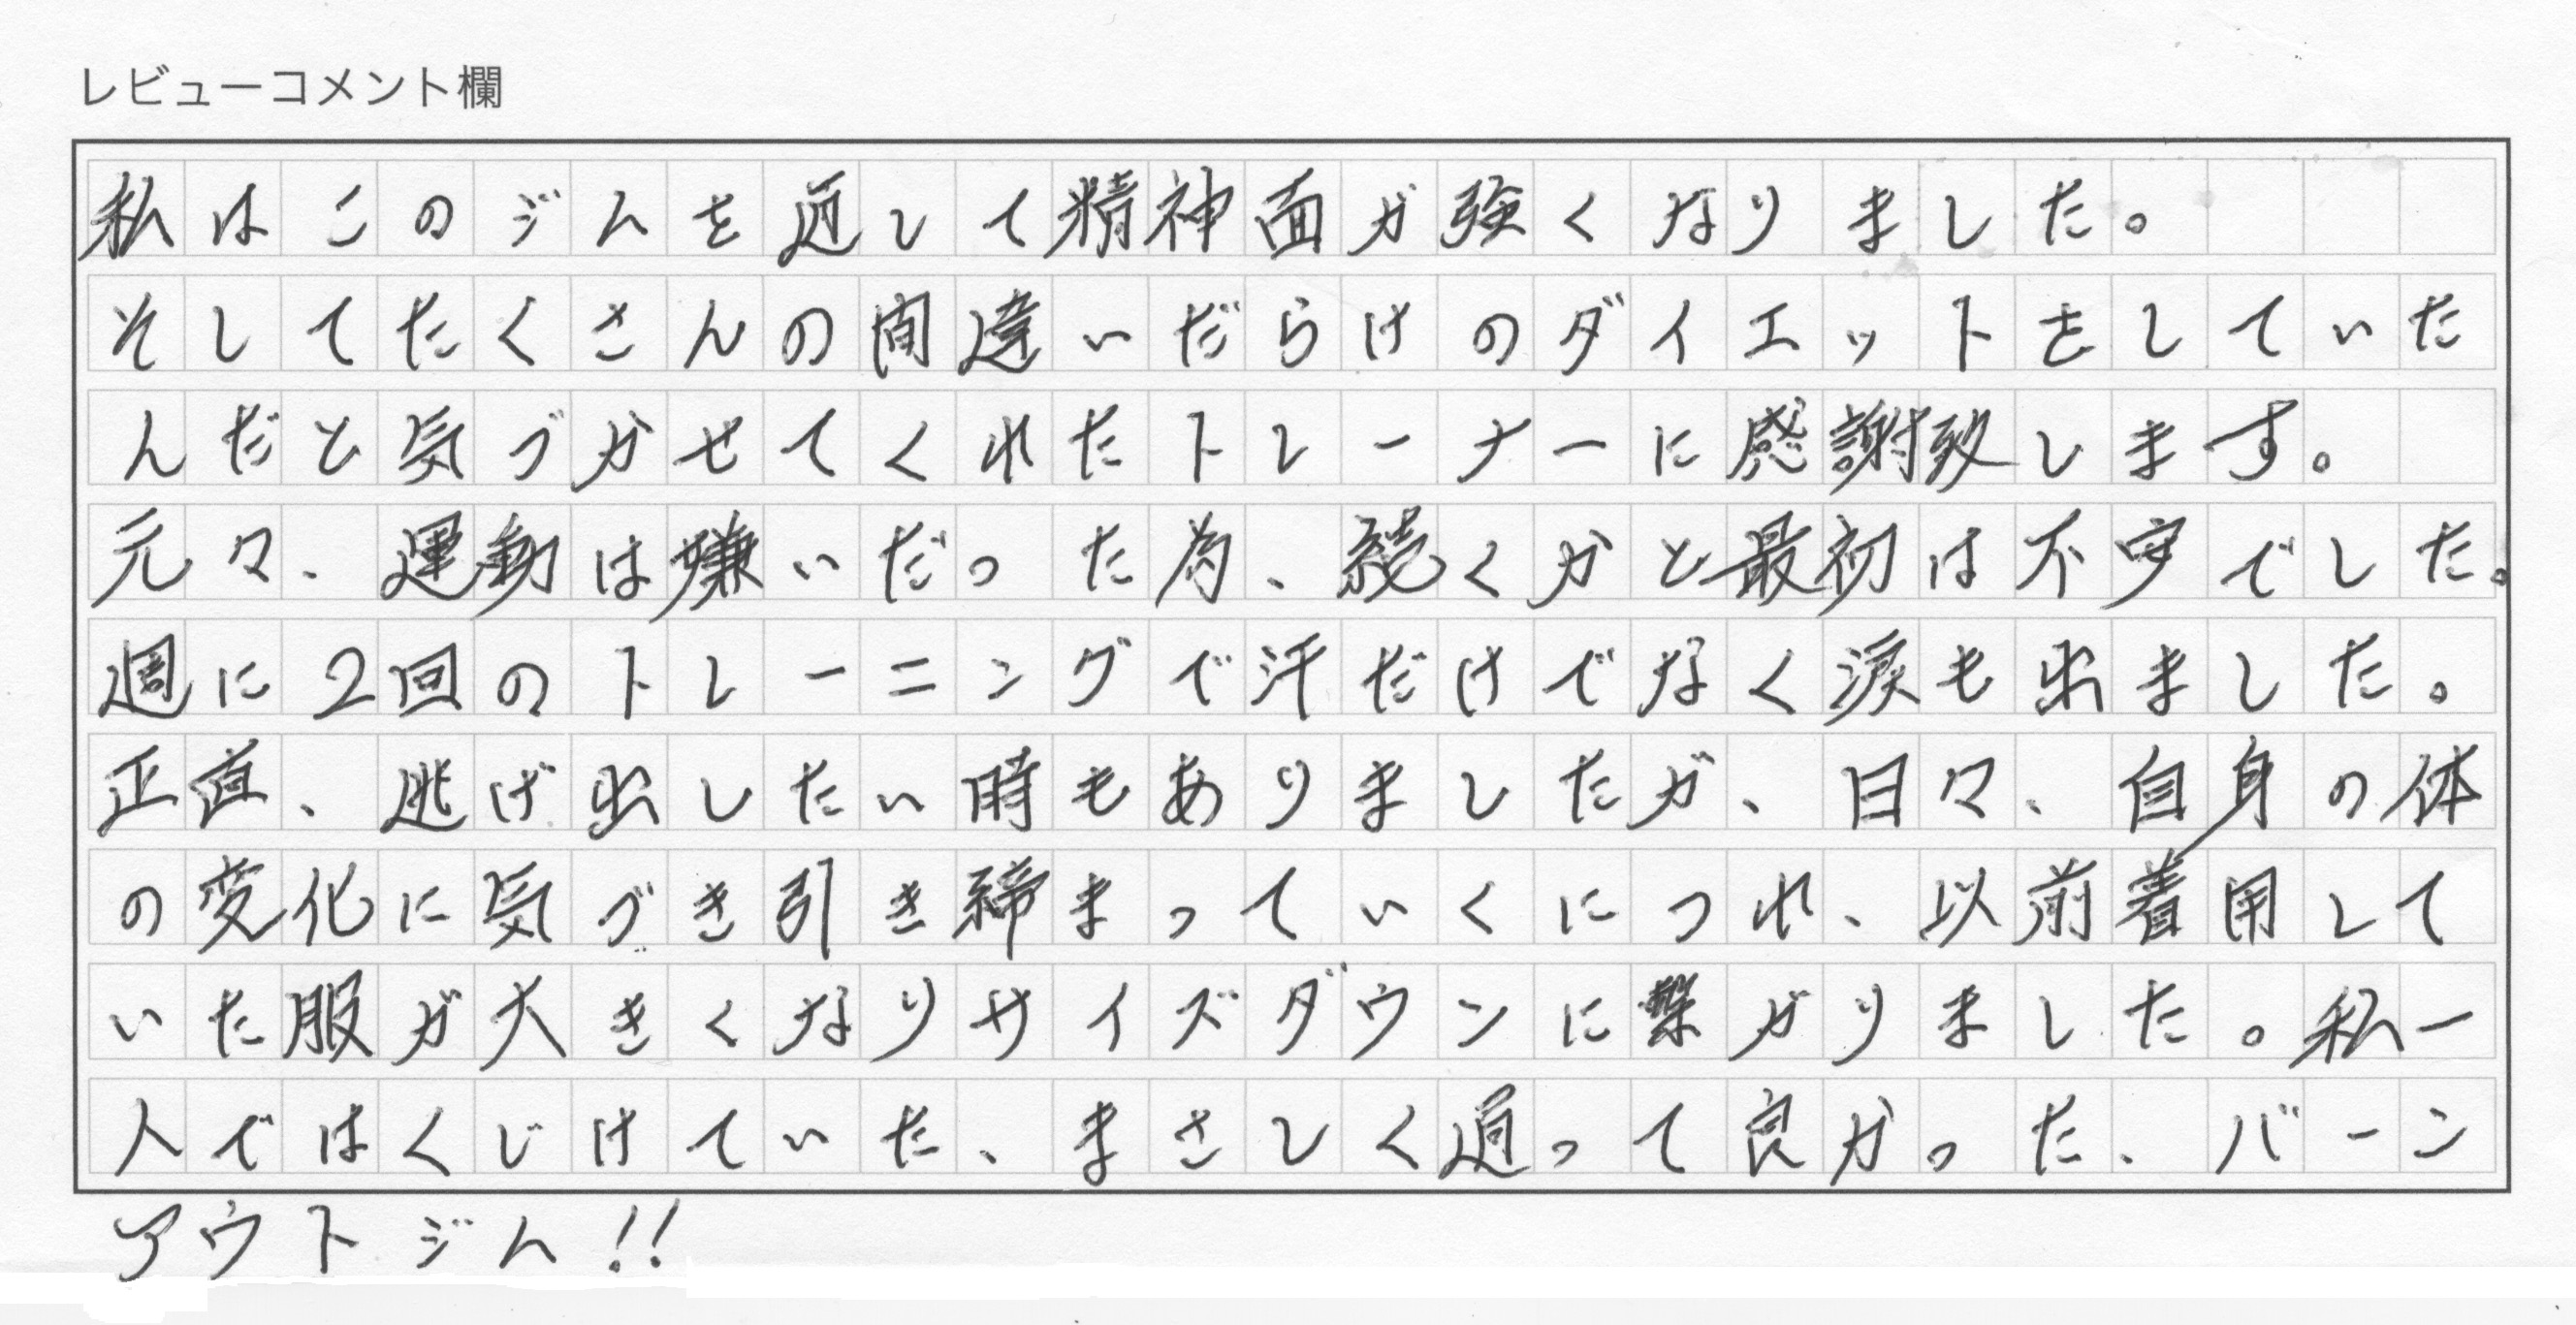 レビューコメント欄
私はこのジムを通して精神面が強くなりました。
そしてたくさんの間違いだらけのダイエットをしていた
んだと気づかせてくれたトレーナーに感謝致します。
元々、運動は嫌いだった為、続くかと最初は不安でした。
週に2回のトレーニングで汗だけでなく涙も出ました。
正直、逃げ出したい時もありましたが、日々、自身の体
の変化に気づき引き締まっていくにつれ、以前着用して
いた服が大きくなりサイズダウンに繋がりました。私一
人ではくじけていた、まさしく通って良かった、バーン
アウトジム!!